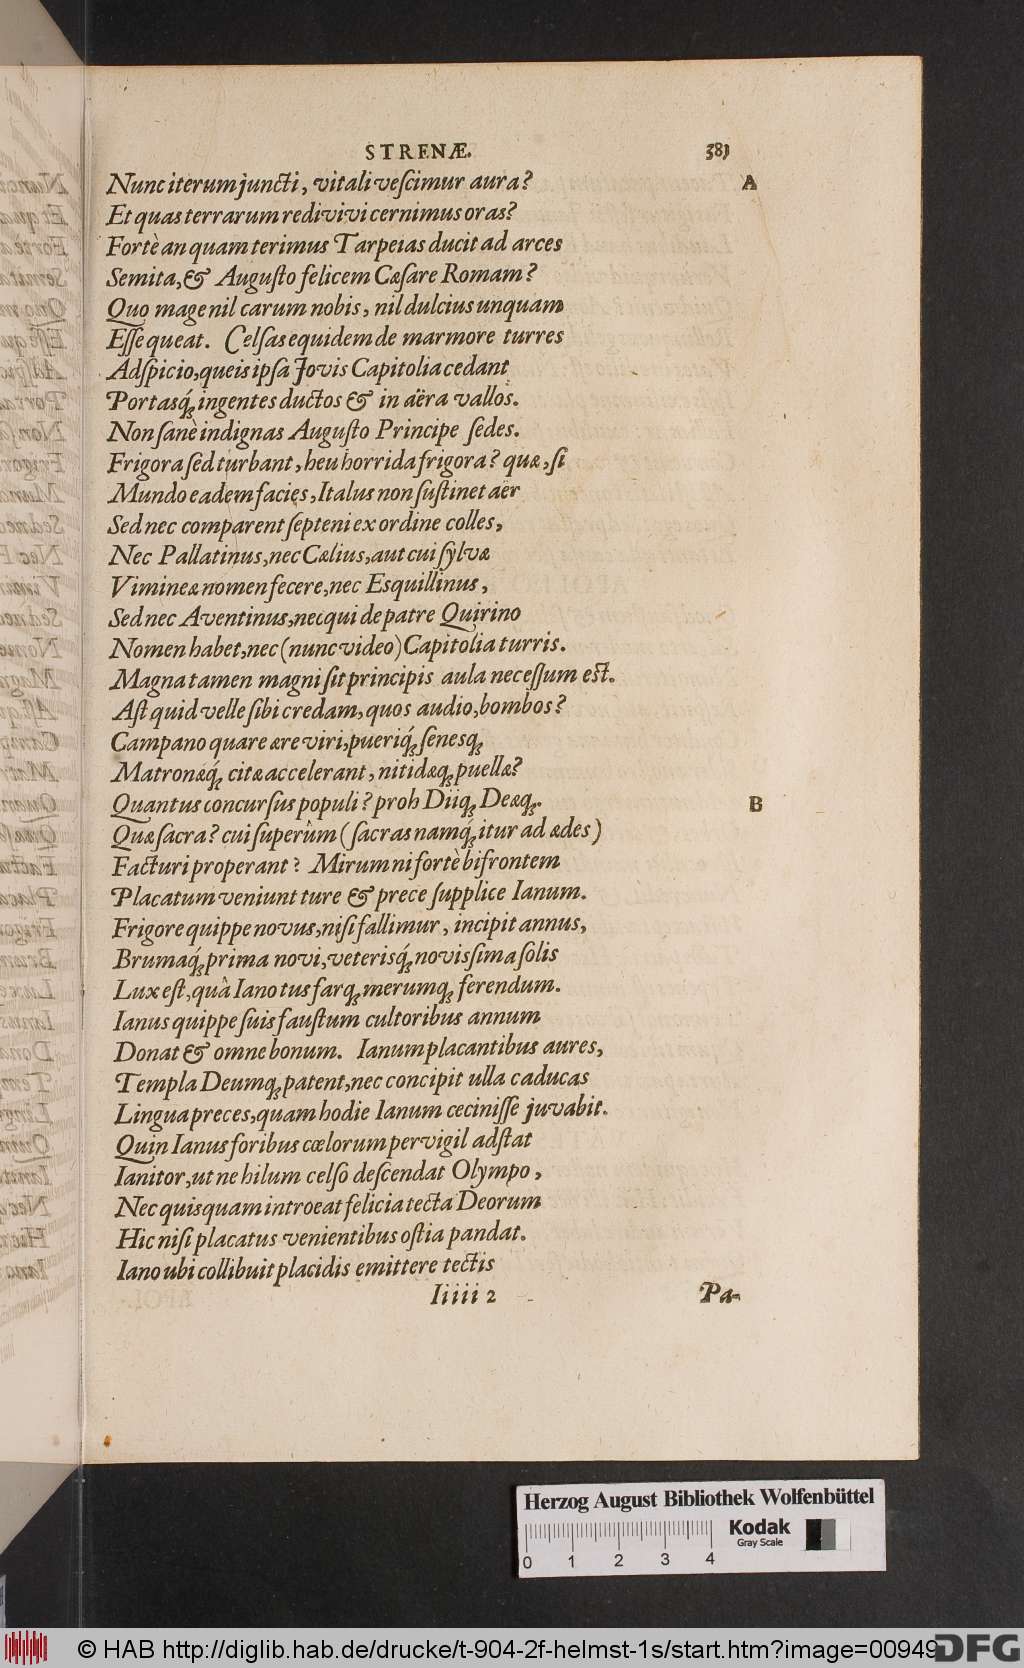 STRENÆ. 381
Nunc iterum juncti, vitali vescimur aura? A
Et quas terrarum redivivi cernimus oras?
Fortè an quam terimus Tarpeias ducit ad arces
Semita, & Augusto felicem Cæsare Romam?
Quo mage nil carum nobis, nil dulcius unquam
Esse queat. Celsas equidem de marmore turres
Adspicio, queis ipsa Jovis Capitolia cedant
Portasq́; ingentes ductos & in aëra vallos.
Non sanè indignas Augusto Principe sedes.
Frigora sed turbant, heu horrida frigora? quæ, si
Mundo eadem facies, Italus non sustinet aër
Sed nec comparent septeni ex ordine colles,
Nec Pallatinus, nec Cælius, aut cui sylvæ
Vimineæ nomen fecere, nec Esquillinus,
Sed nec Aventinus, nec qui de patre Quirino
Nomen habet, nec (nunc video) Capitolia turris.
Magna tamen magni sit principis aula necessum est.
Ast quid velle sibi credam, quos audio, bombos?
Campano quare ære viri, pueriq́; senesq;
Matronæq́; citæ accelerant, nitidæq; puellæ?
Quantus concursus populi? proh Diiq; Deæq;. B
Quæ sacra? cui superûm (sacras namq́; itur ad ædes)
Facturi properant? Mirum ni fortè bifrontem
Placatum veniunt ture & prece supplice Ianum.
Frigore quippe novus, nisi fallimur, incipit annus,
Brumaq́; prima novi, veterisq́; novissima solis
Lux est, quâ Iano tus farq; merumq; ferendum.
Ianus quippe suis faustum cultoribus annum
Donat & omne bonum. Ianum placantibus aures,
Templa Deumq; patent, nec concipit ulla caducas
Lingua preces, quam hodie Ianum cecinisse juvabit.
Quin Ianus foribus cœlorum pervigil adstat
Ianitor, ut ne hilum celso descendat Olympo,
Nec quisquam introeat felicia tecta Deorum
Hic nisi placatus venientibus ostia pandat.
Iano ubi collibuit placidis emittere tectis
Iiiii 2 Pa-
Herzog August Bibliothek Wolfenbüttel
Kodak
Gray Scale
0 1 2 3 4
© HAB http://diglib.hab.de/drucke/t-904-2f-helmst-1s/start.htm?image=00949
DFG